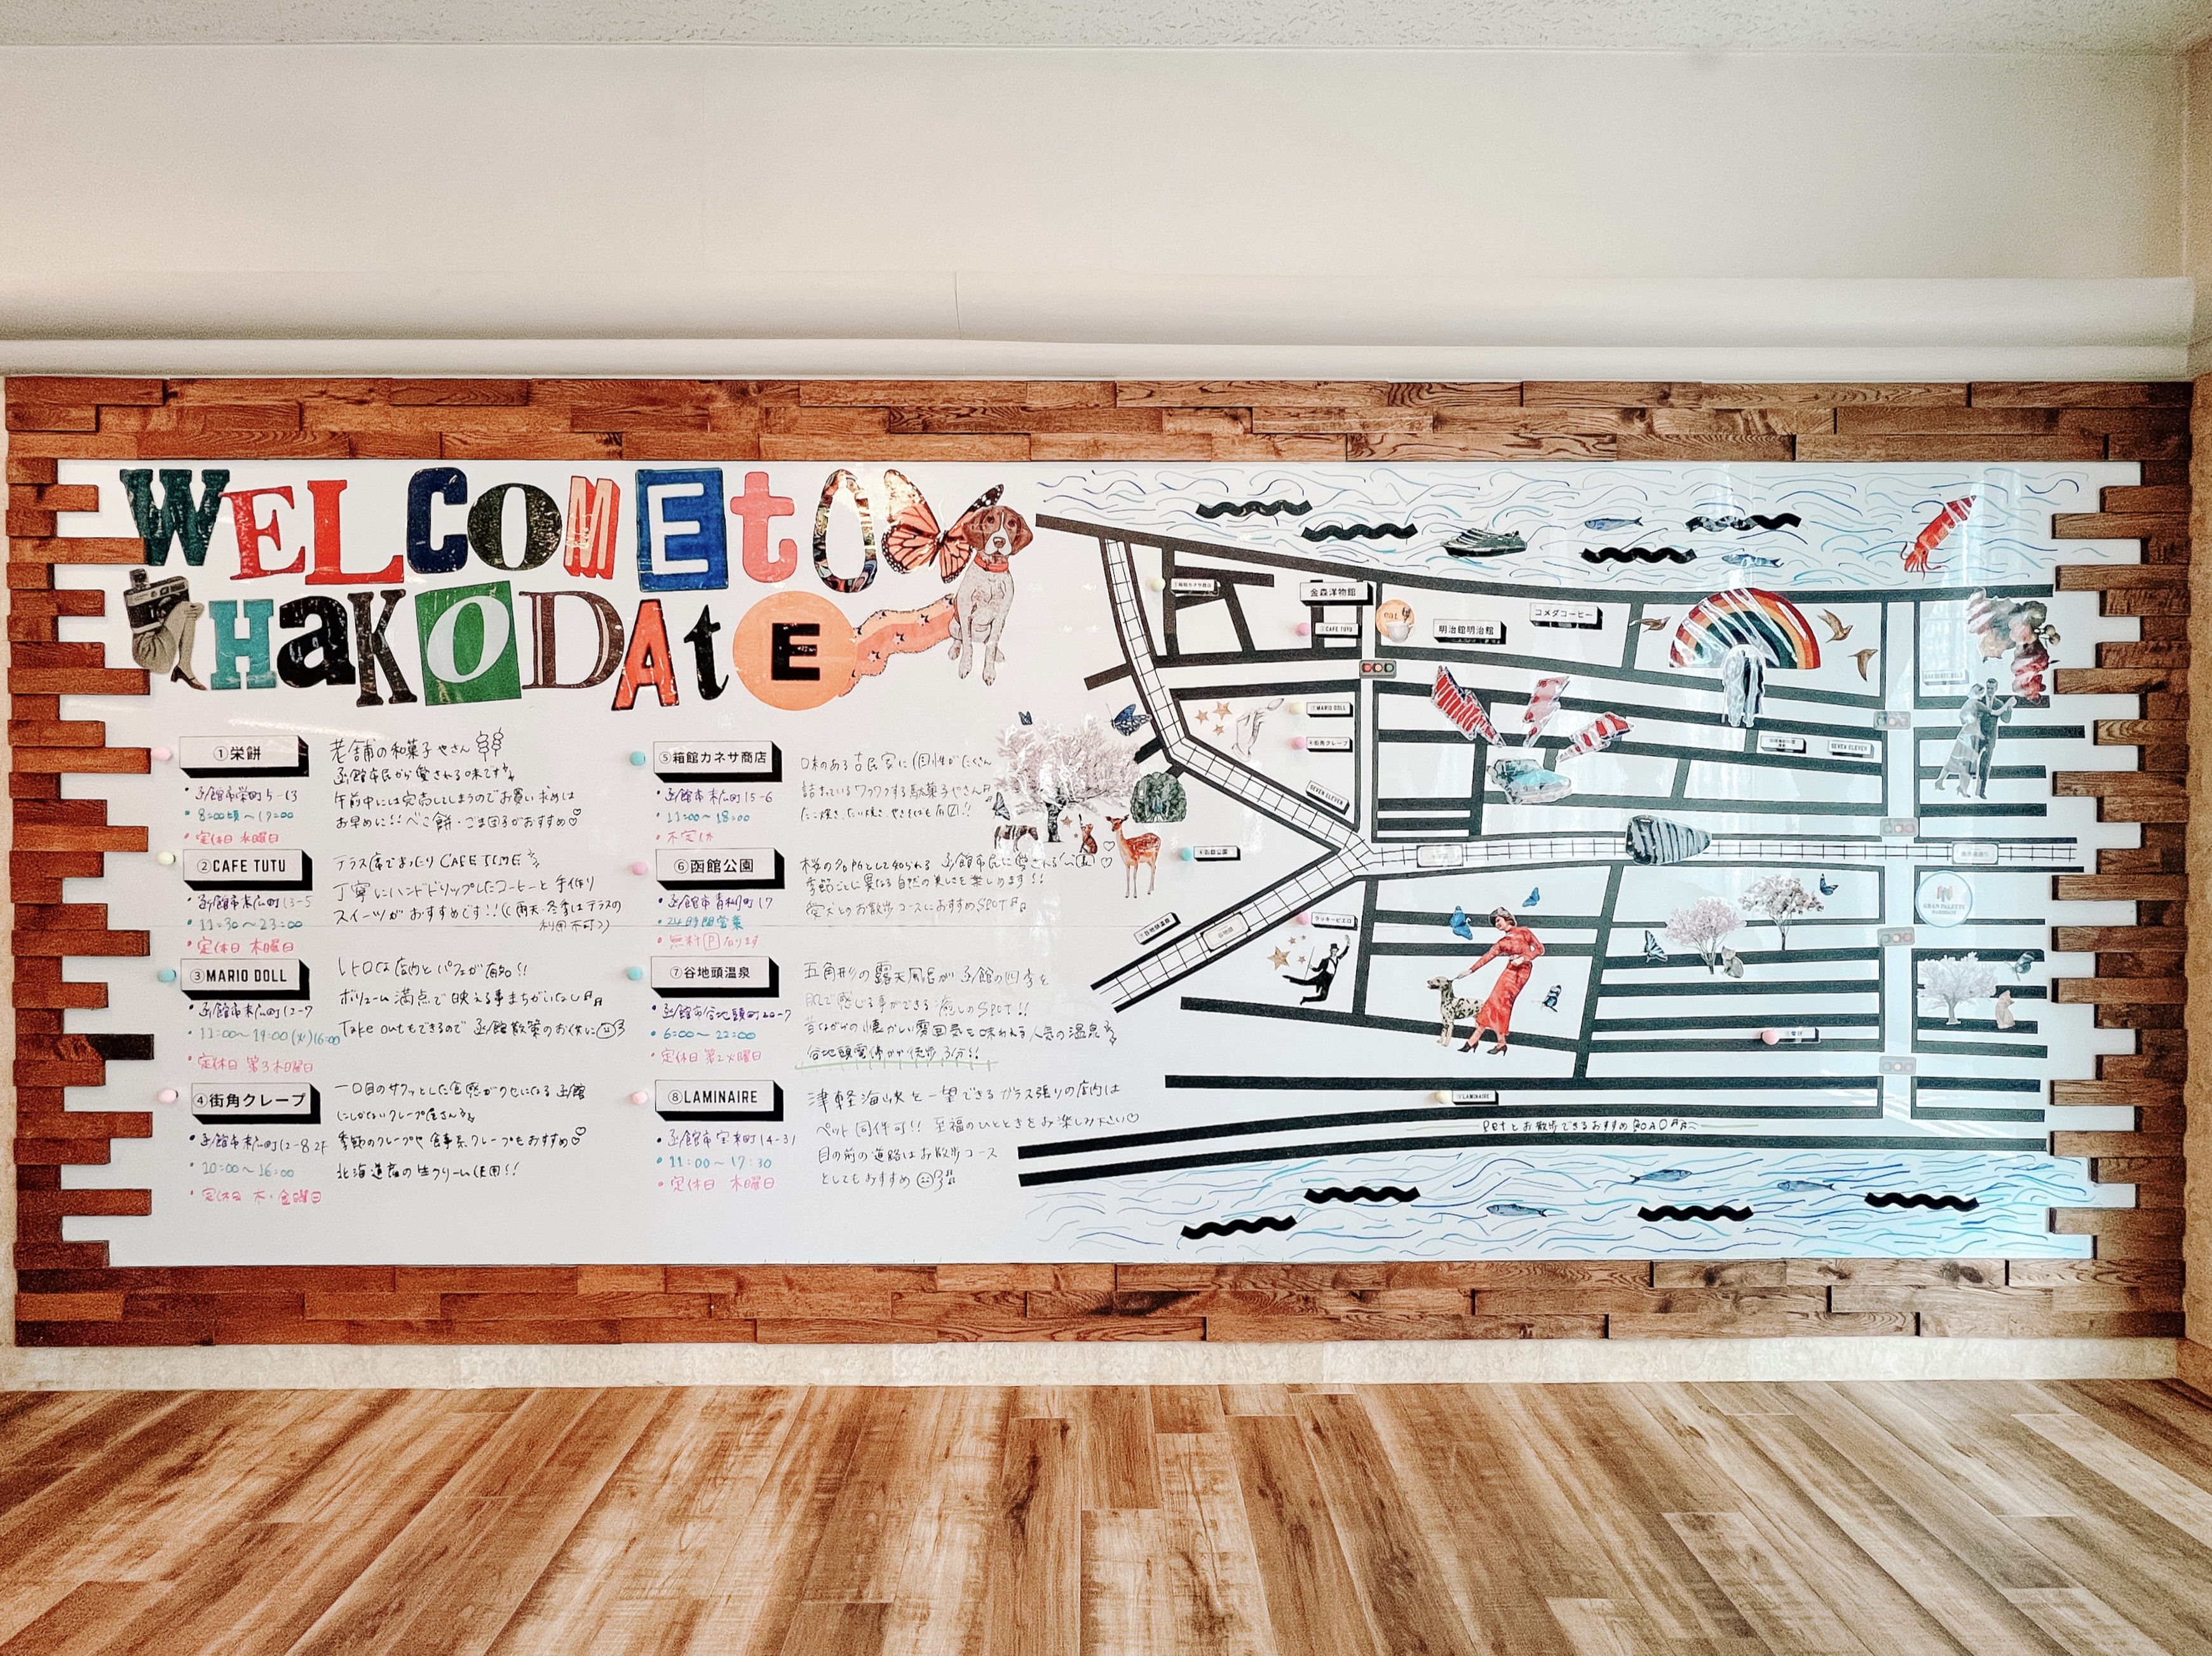 WELCOME tO
HaKODAtE
①栄餅
老舗の和菓子やさん
函館市民から愛される味です
・函館市栄町5-13
午前中には完売してしまうのでお買い求めは
・8:00頃〜17:00
お早めに!!べこ餅・ごま団子がおすすめ♡
・定休日 水曜日
②CAFE TUTU
テラス席でまったり CAFE TIME
・函館市末広町13-5
丁寧にハンドドリップしたコーヒーと手作り
・11:30〜23:00
スイーツがおすすめです!!(雨天・冬季はテラスの
利用不可)
・定休日 木曜日
③MARIO DOLL
レトロな店内とパフェが有名!!
・函館市末広町12-7
ボリューム満点で映える事まちがいなし
・11:00〜19:00(火)16:00
Take outもできるので 函館散策のお供に
・定休日 第3木曜日
④街角クレープ
一口目のサクッとした食感がクセになる函館
にしかないクレープ屋さん
・函館市末広町12-8 2F
季節のクレープや食事系クレープもおすすめ♡
・10:00〜16:00
北海道産の生クリーム使用!!
・定休日 木・金曜日
⑤箱館カネサ商店
味のある古民家に個性がたくさん
・函館市末広町15-6
詰まっているワクワクする駄菓子やさん
・11:00〜18:00
・不定休
⑥函館公園
桜の名所として知られる 函館市民に愛される
季節ごとに異なる自然の美しさを楽しめます!!
・函館市青柳町17
愛犬とのお散歩コースにおすすめSPOT
・24時間営業
・無料Ⓟあります
⑦谷地頭温泉
五角形の露天風呂が函館の四季を
・函館市谷地頭町20-7
肌で感じる事ができる癒しのSPOT!!
・6:00〜22:00
昔ながらの懐かしい雰囲気を味わえる人気の温泉
・定休日 第2火曜日
谷地頭電停から徒歩3分!!
⑧LAMINAIRE
津軽海峡を一望できるガラス張りの店内は
・函館市宝来町14-31
ペット同伴可!! 至福のひとときをお楽しみ下さい♡
・11:00〜17:30
目の前の道路はお散歩コース
・定休日 木曜日
としてもおすすめ
⑤箱館カネサ商店
金森洋物館
②CAFE TUTU
eat
明治館明治館
コメダコーヒー
③MARIO DOLL
④街角クレープ
SEVEN ELEVEN
SEVEN ELEVEN
⑥函館公園
⑦谷地頭温泉
谷地頭
ラッキーピエロ
GRAN PALETTE
HAKODATE
①栄餅
⑧LAMINAIRE
Petとお散歩できるおすすめROAD